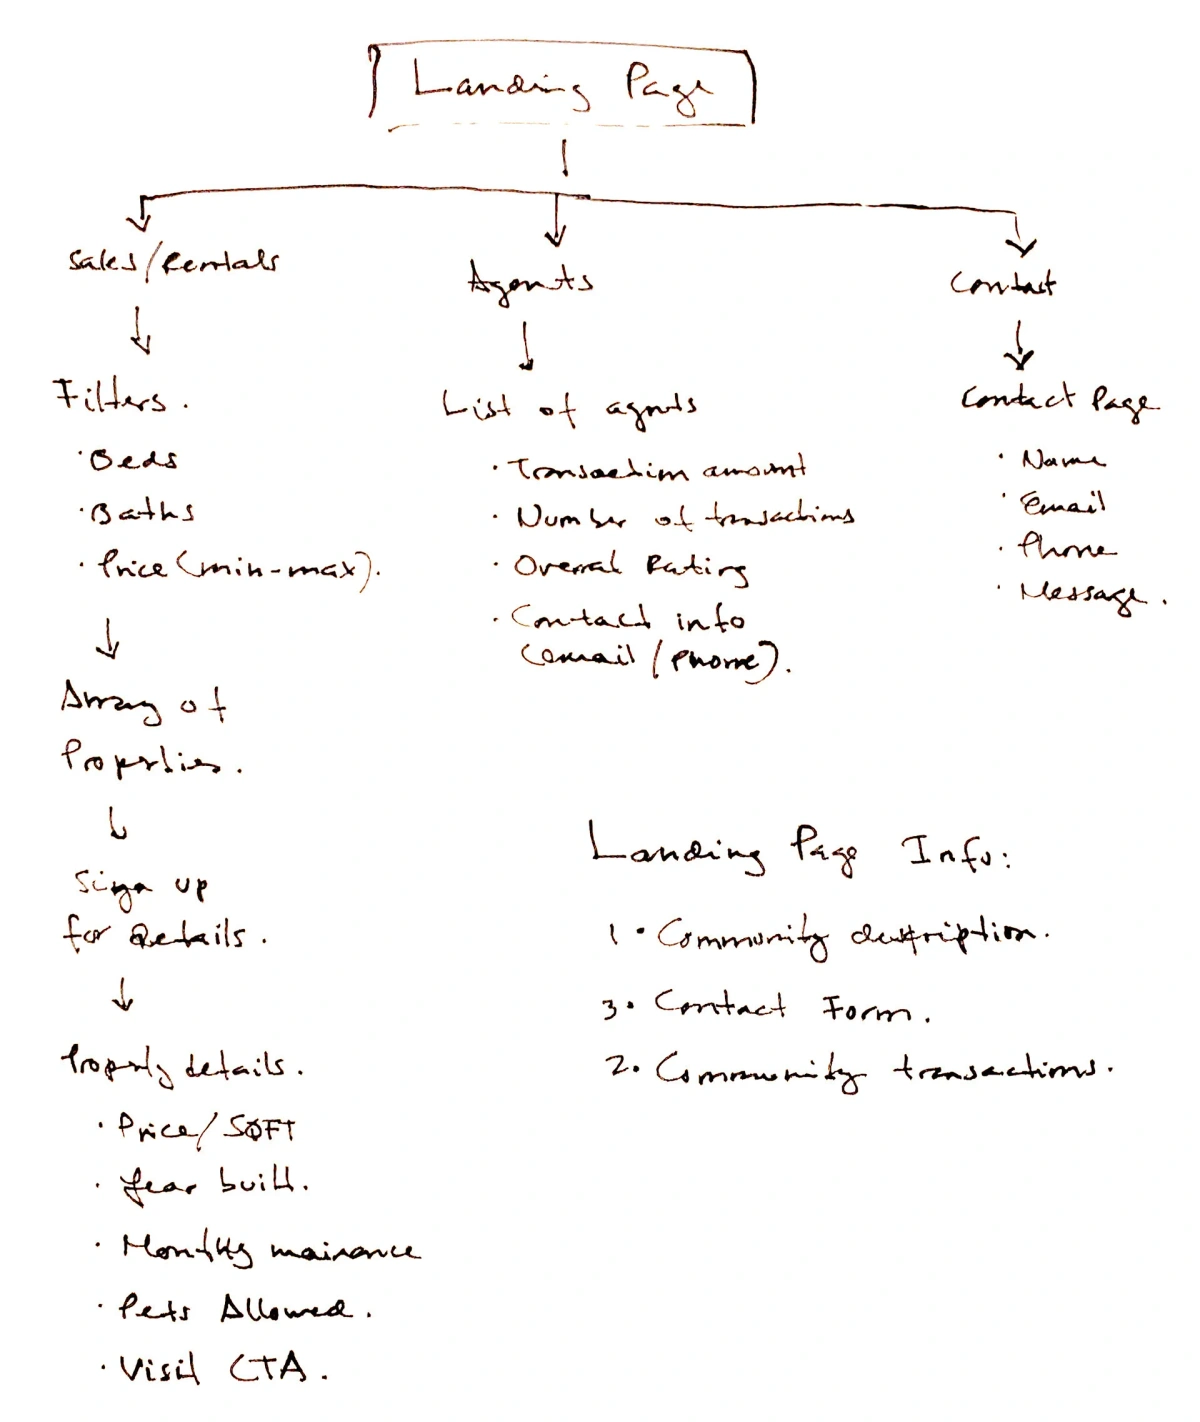 Landing Page
Sales/Rentals
Agents
Contact
Filters.
· Beds
· Baths
· Price (min-max).
Array of
Properties.
Sign up
for details.
Property details.
· Price/SQFT
· Year built.
· Monthly mainance
· Pets Allowed.
· Visit CTA.
List of agents
· Transaction amount
· Number of transactions
· Overral Rating
· Contact info
(email/phone).
Contact Page
· Name
· Email
· Phone
· Message.
Landing Page Info:
1. Community description.
3. Contact Form.
2. Community transactions.